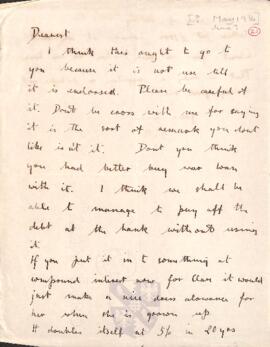 May 1916
Dearest
I think this ought to go to
you because it is not use till
it is endorsed. Please be careful of
it. Dont be cross with me for saying
it is the sort of remark you dont
like isn't it. Dont you think
you had better buy war loan
with it. I think we shall be
able to manage to pay off the
debt at the bank without using
it
If you put it in to something at
compound interest now for Clare it would
just make a nice dress allowance for
her when she is grown up
It doubles itself at 5% in 20 yrs